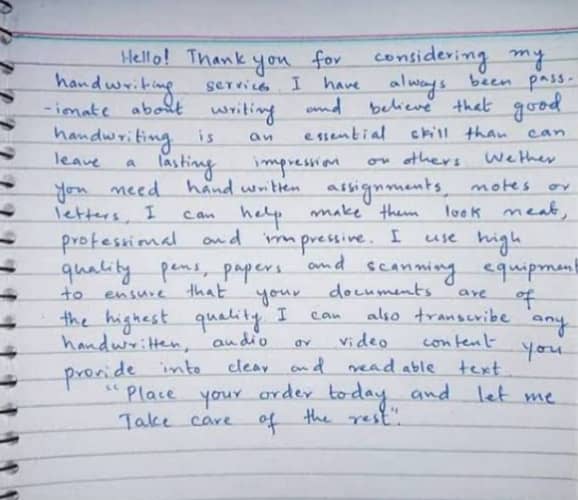 Hello! Thank you for considering my
handwriting services I have always been pass-
-ionate about writing and believe that good
handwriting is an essential skill than can
leave a lasting impression on others Wether
you need handwritten assignments, notes or
letters, I can help make them look neat,
professional and impressive. I use high
quality pens, papers and scanning equipment
to ensure that your documents are of
the highest quality. I can also transcribe any
handwritten, audio or video content you
provide into clear and readable text.
"Place your order today and let me
Take care of the rest".